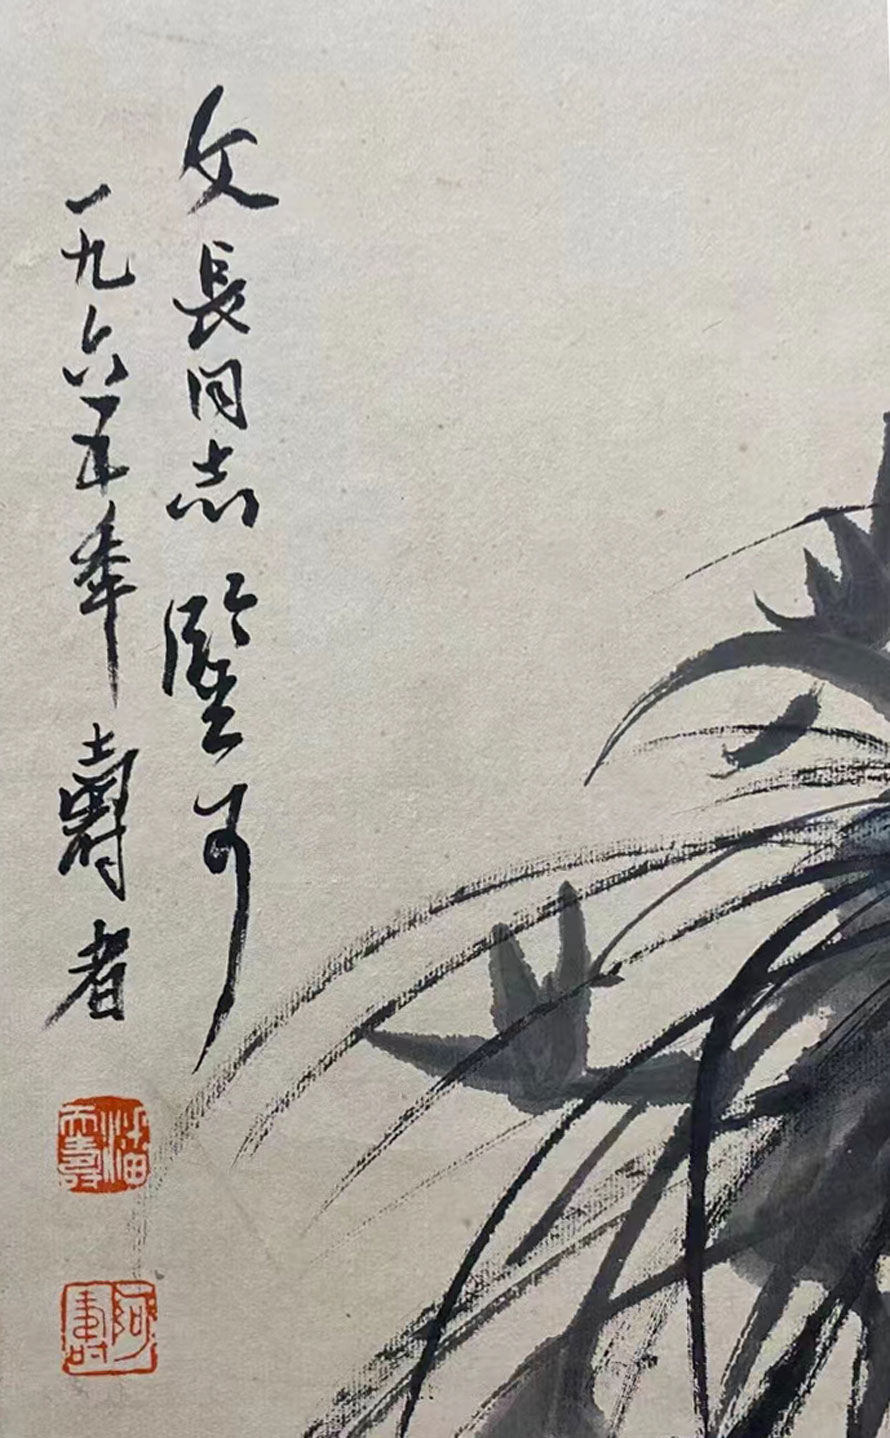 文長同志鑒可
一九六五年壽者
潘天壽
阿壽